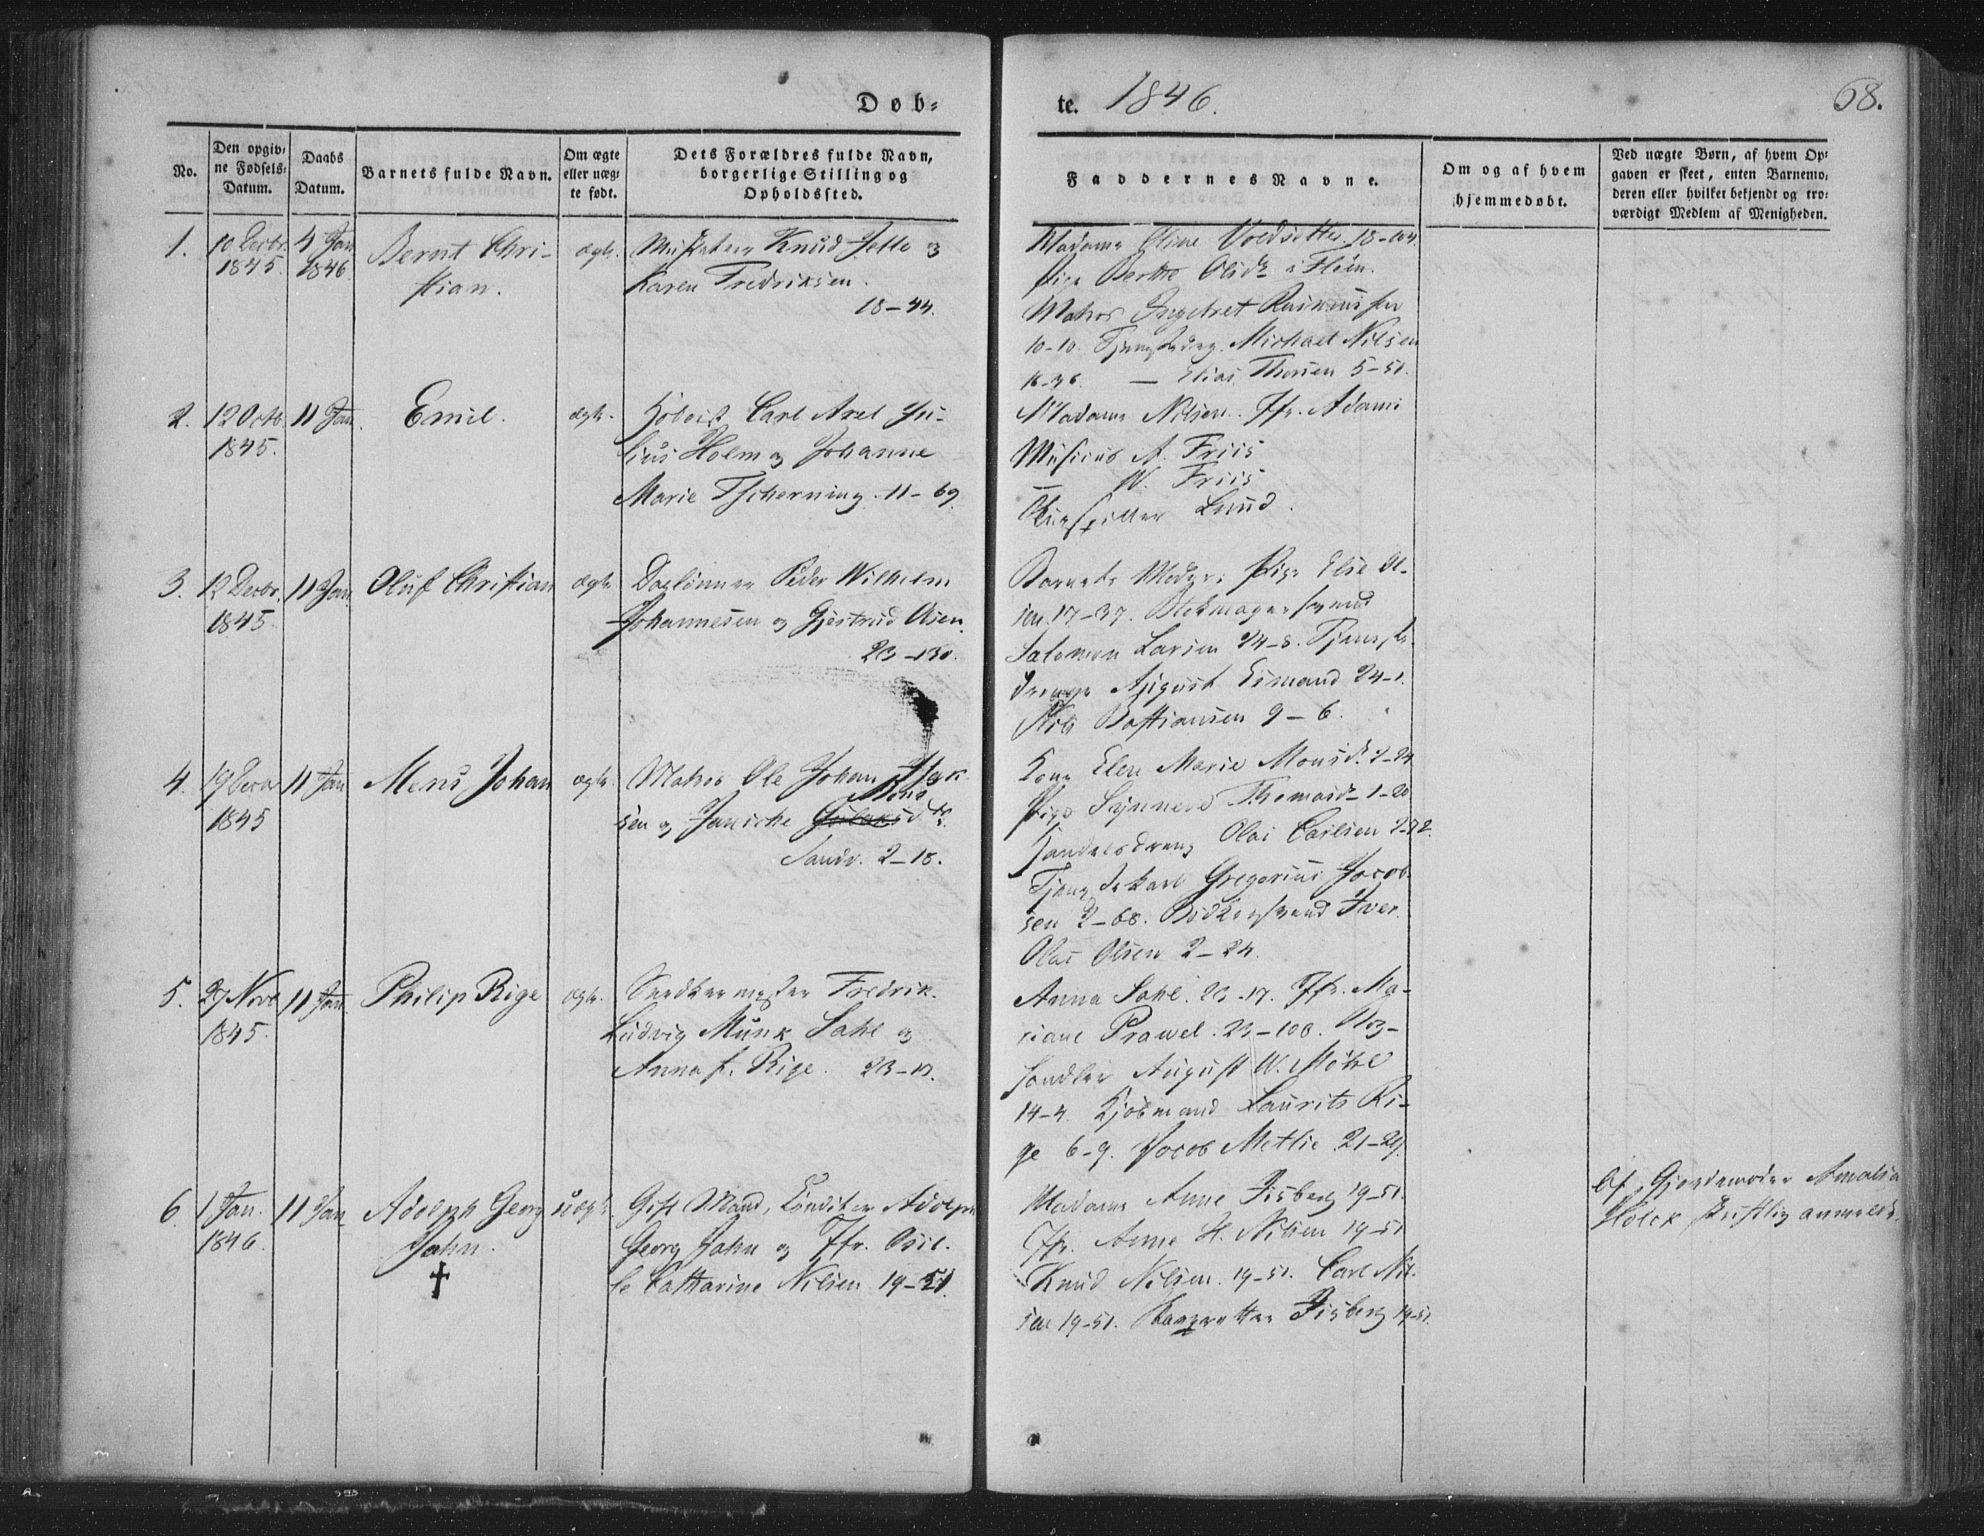 Døb-
te. 1846. 68.
No.
Den opgiv-
ne Fødsels-
Datum.
Daabs
Datum.
Barnets fulde Navn.
Om ægte
eller uæg-
te født.
Dets Forældres fulde Navn,
borgerlige Stilling og
Opholdssted.
Faddernes Navne.
Om og af hvem
hjemmedøbt.
Ved uægte Børn, af hvem Op-
gaven er skeet, enten Barnemo-
deren eller hvilket bekjendt og tro-
værdigt Medlem af Menigheden.
1.
10 Decbr.
1845.
4 Jan
1846.
Bernt Chri-
stian.
ægte.
Knud Jelle og
Karen Fredriksen.
18-44.
Madame Oline Voldsetter 18-104.
Pige Berthe Olsdr i Floen.
Matros Ingebret Rasmussen
10-10. Michael Nilsen
16-36. — Elias Thosen 5-51.
2.
12 Octb.
1845.
11 Jan.
Emil.
ægte.
Hoboist Carl Axel Ju-
lius Holm og Johanne
Marie Tscherning. 11-69.
Madame Nilsen. Jfr. Adami
Musicus A. Friis
— W. Friis
Lund.
3.
12 Decbr.
1845.
11 Jan.
Oluf Christian
ægte
Daglønner Peder Wilhelm
Johannesen og Gjertrud Olsen.
23-130.
Barnets Moder. Pige Elie Ol-
sen. 17-37. Blokmagersvend
Salomon Larsen 24-8. Tjeneste-
drenge August Esmand 24-1.
Nils Bastiansen 9-6.
4.
19 Decbr
1845
11 Jan
Mens Johan
ægte.
Matros Ole Johan
sen og Janicke
Sandv. 2-18.
Kone Elen Marie Monsd. 2-24
Pige Synneve Thomasd. 1-20
Handelsdreng Olai Carlsen 2-72.
Tjenestekarl Gregorius Jacob-
sen 2-68. Bødkersvend Iver.
Olai Olsen 2-24.
5.
27 Novb.
1845.
11 Jan
Philip Rige
ægte.
Snedkermester Fredrik
Ludvig Munk Sahl og
Anna f. Rige. 23-17.
Anna Sahl. 23-17. Jfr. Ma-
riane Prawel. 23-100. Bog-
handler August W. Møhl
14-4. Kjøbmand Laurits Ri-
ge 6-9. Jacob Metlie. 21-29.
6.
1 Jan.
1846.
11 Jan
Adolph Georg
Jahn.
†
uægte.
Gift Mand, Conditor Adolph
Georg Jahn og Jfr. Osil-
le Cathrine Nilsen 19-51.
Madame Anne Fisberg 19-51.
Jfr. Anne H. Nilsen 19-51
Knud Nilsen. 19-51. Carl Nil-
sen 19-51. Fisberg 19-51.
Af Gjordemoder Amalia
Holck skriftlig anmeldt.